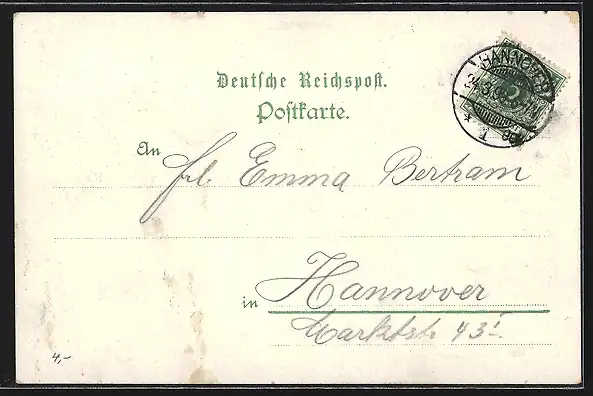 Deutsche Reichspost.
Postkarte.
HANNOVER
An frl. Emma Bertram
in Hannover
Marktstr. 43 I.
4,-